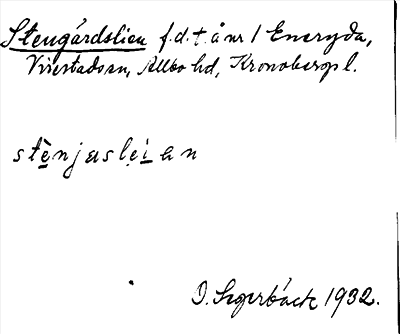 Stengårdslien f.d.t. å nr 1 Eneryda,
Virestads sn, Allbo hd, Kronobergs l.
stènjasleian
D. Segerbäck 1932.